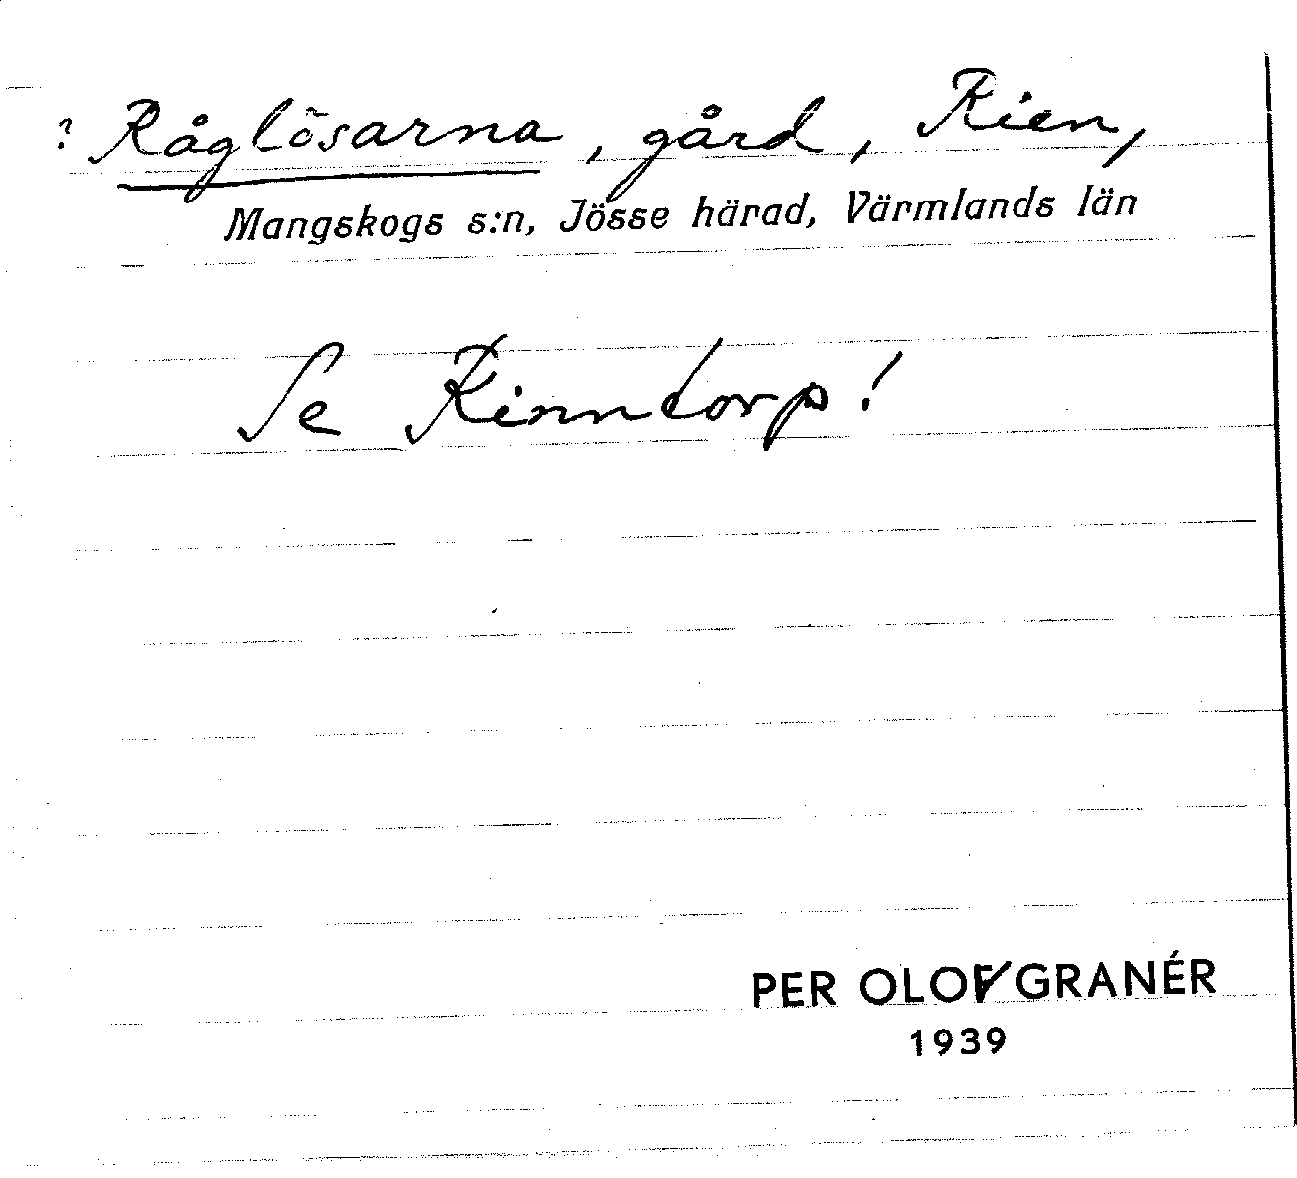 ? Råglösarna, gård, Rien,
Mangskogs s:n, Jösse härad, Värmlands län
Se Rinntorp!
PER OLOF GRANÉR
1939